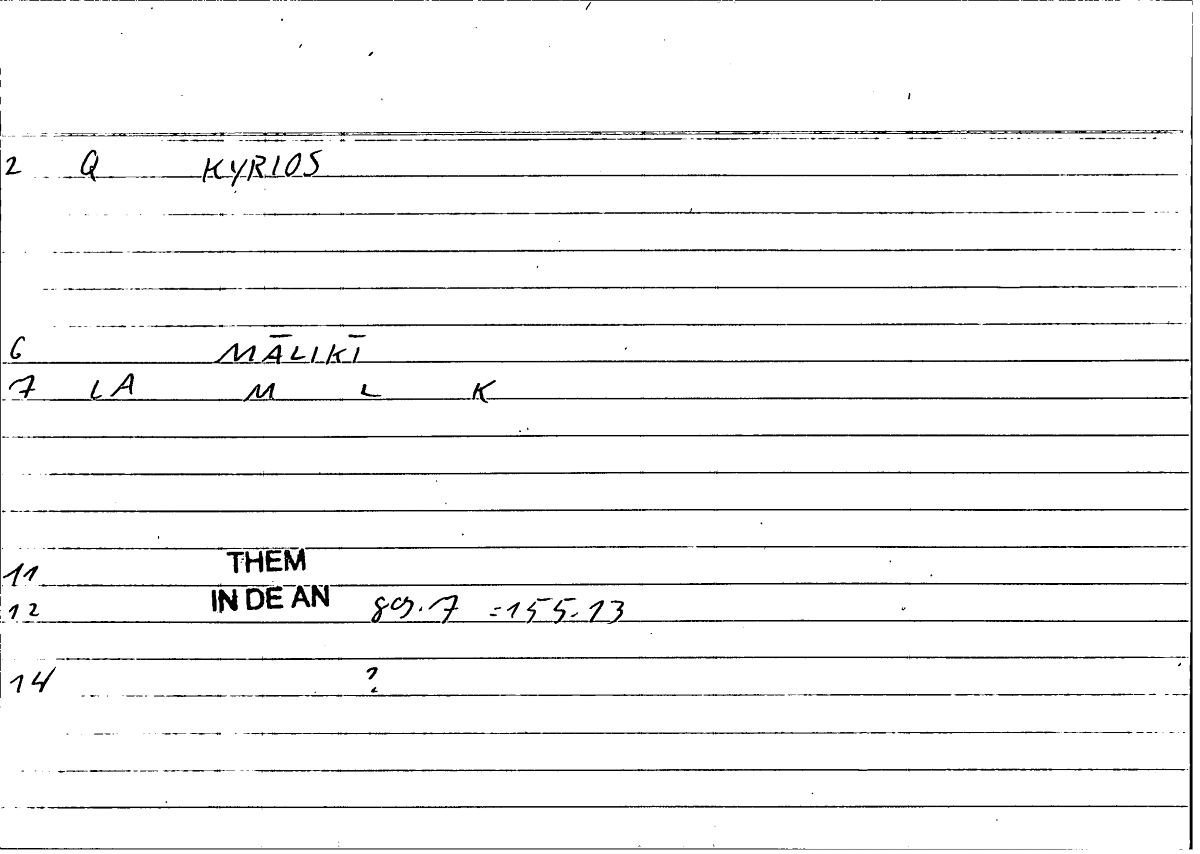 2 Q KYRIOS
6 MĀLIKĪ
7 LA M L K
11 THEM
12 IN DE AN 809.7 =155.13
14 ?